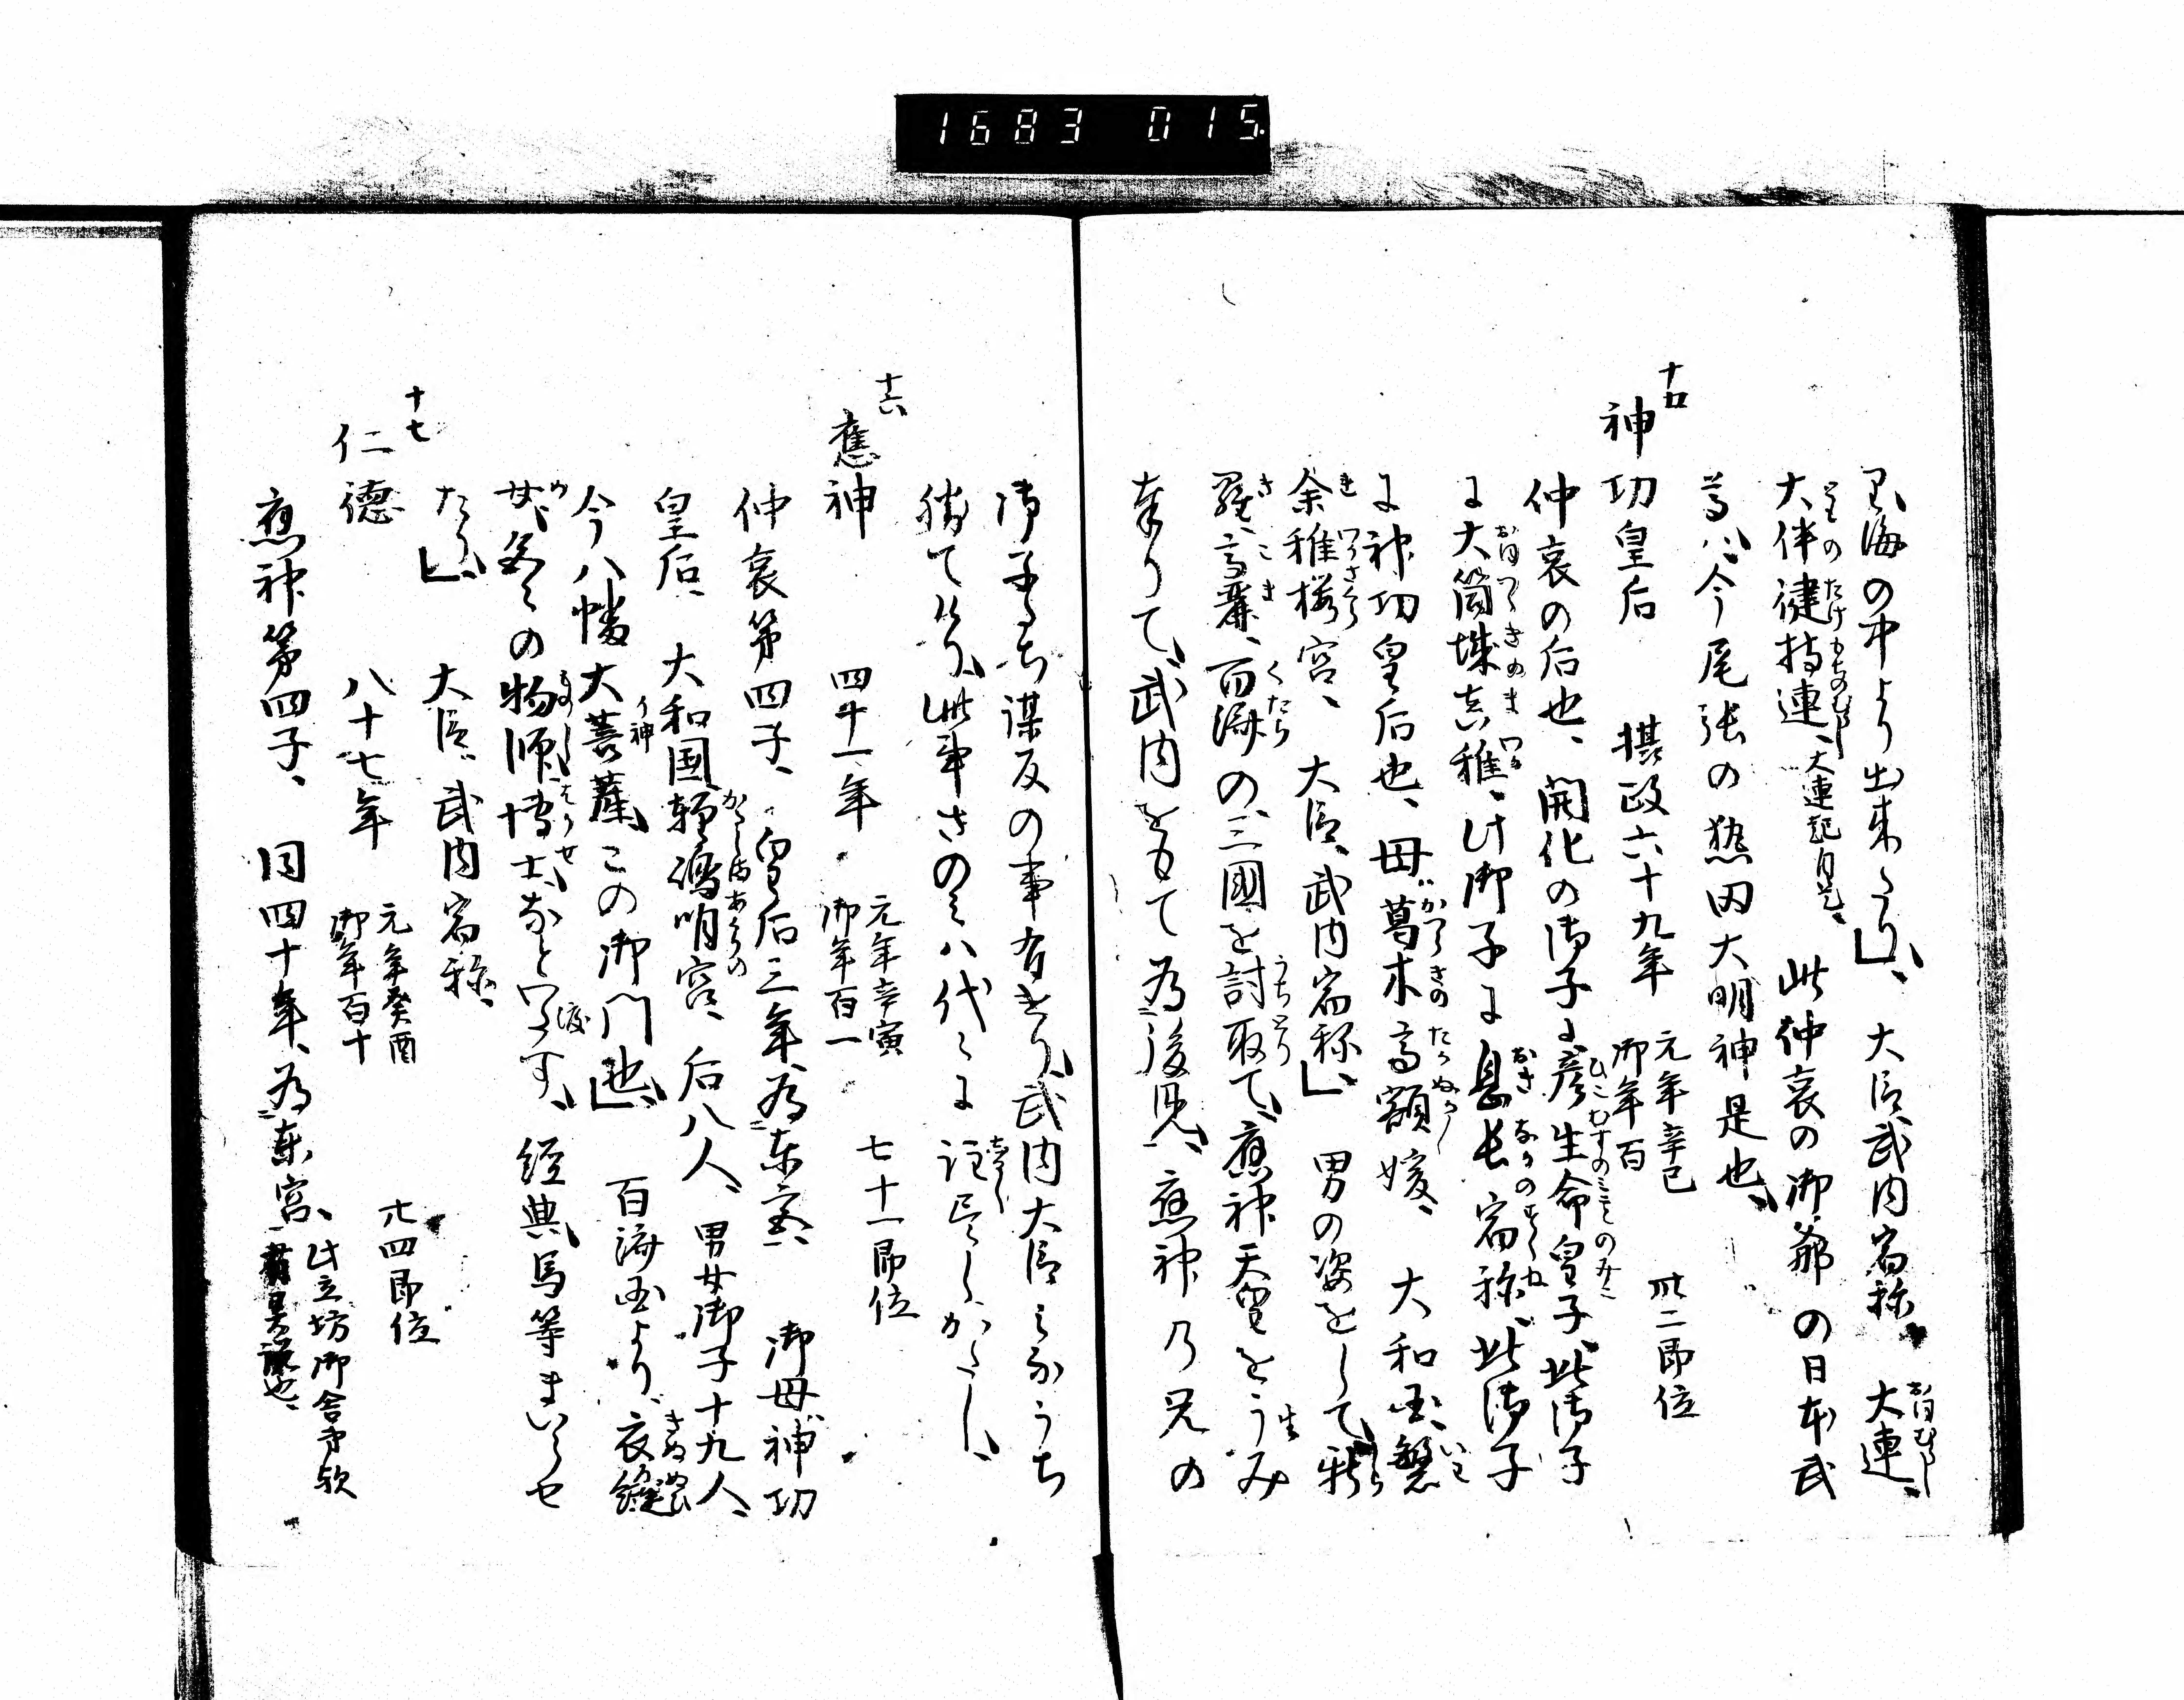 1683 015
り海の中より出来たり、大臣武内宿祢 大連、
大伴健持連、大連起自是、此仲哀の御爺の日本武
尊ハ今尾張の熱田大明神是也、
十五
神功皇后 摂政六十九年 元年辛巳 御年百 卅二即位
仲哀の后也、開化の御子に彦坐命皇子、此御子
に大筒城真稚、此御子に息長宿祢、此御子
に神功皇后也、母葛木高額媛、大和国磐
余稚桜宮、大臣武内宿祢、男の姿をして新
羅、高麗、百済の三國を討取て、應神天皇をうみ
奉りて、武内をもて為後見、應神乃兄の
御子たち謀反の事有けり、武内大臣みなうち
勝てけり、此事さのみハ代々に注尽しかたし、
十六
應神 四十一年 元年辛寅 御年百一 七十一即位
仲哀第四子、皇后三年為東宮、御母神功
皇后、大和国軽嶋明宮、后八人、男女御子十九人、
今八幡大菩薩、この御門也、百済国より、衣縫
女、色々の物師、博士なとわたす、経典、馬等まいらせ
たり、大臣武内宿祢、
十七
仁徳 八十七年 元年癸酉 御年百十 廿四即位
應神第四子、同四十年為東宮、此立坊御舎弟歟